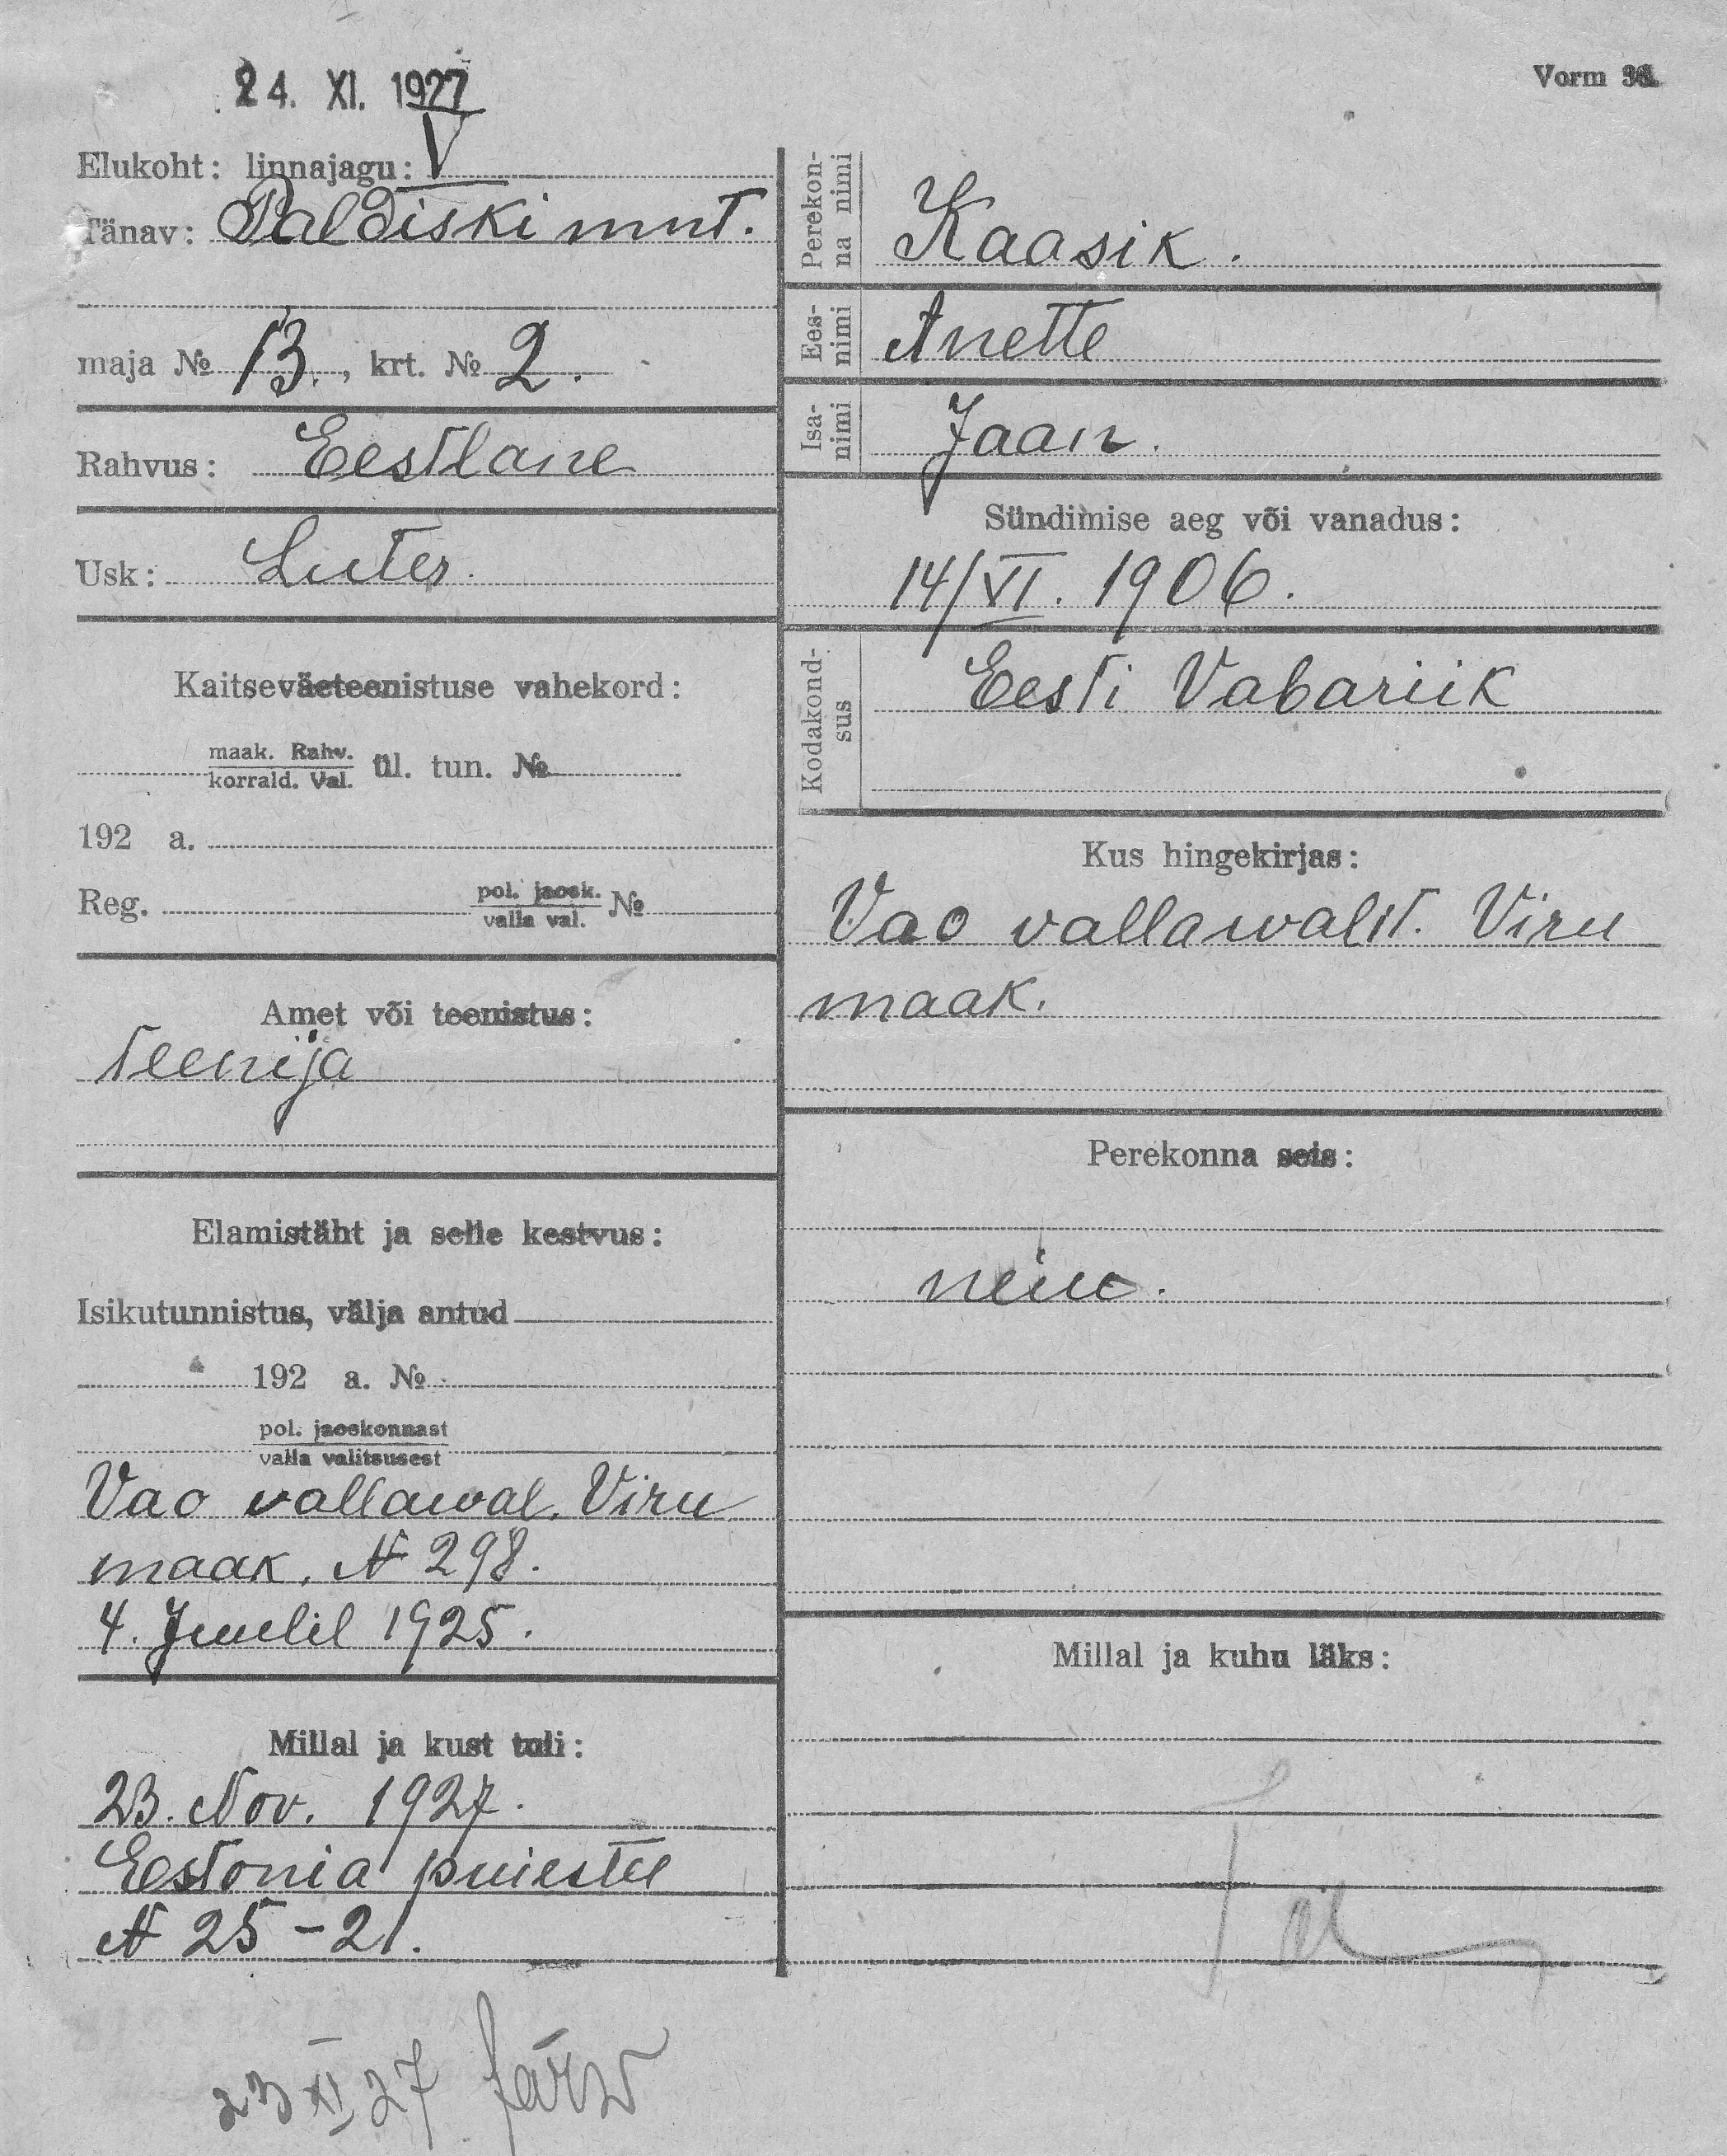 24. XI. 1927
Vorm
Elukoht: linnajagu: V
Tänav: Paldiski mnt.
maja № 13., krt. № 2.
Rahvus: Eestlane
Usk: Luter.
Kaitseväeteenistuse vahekord:
maak. Rahv.
korrald. Val. ül. tun. №
192 a.
Reg. pol. jaosk.
valla val. №
Amet või teenistus:
Teenija
Elamistäht ja selle kestvus:
Isikutunnistus, välja antud
192 a. №
pol. jaoskonnast
valla valitsusest
Vao vallawal. Viru
maak. № 298.
4. Juulil 1925.
Millal ja kust tuli:
23. Nov. 1927.
Estonia puiestee
№ 25-21.
23 XI 27 Järw
Perekon-
na nimi Kaasik.
Ees-
nimi Anette
Isa-
nimi Jaan.
Sündimise aeg või vanadus:
14/VI. 1906.
Kodakond-
sus Eesti Vabariik
Kus hingekirjas:
Vao vallawalit. Viru
maak.
Perekonna seis:
neiu.
Millal ja kuhu läks: